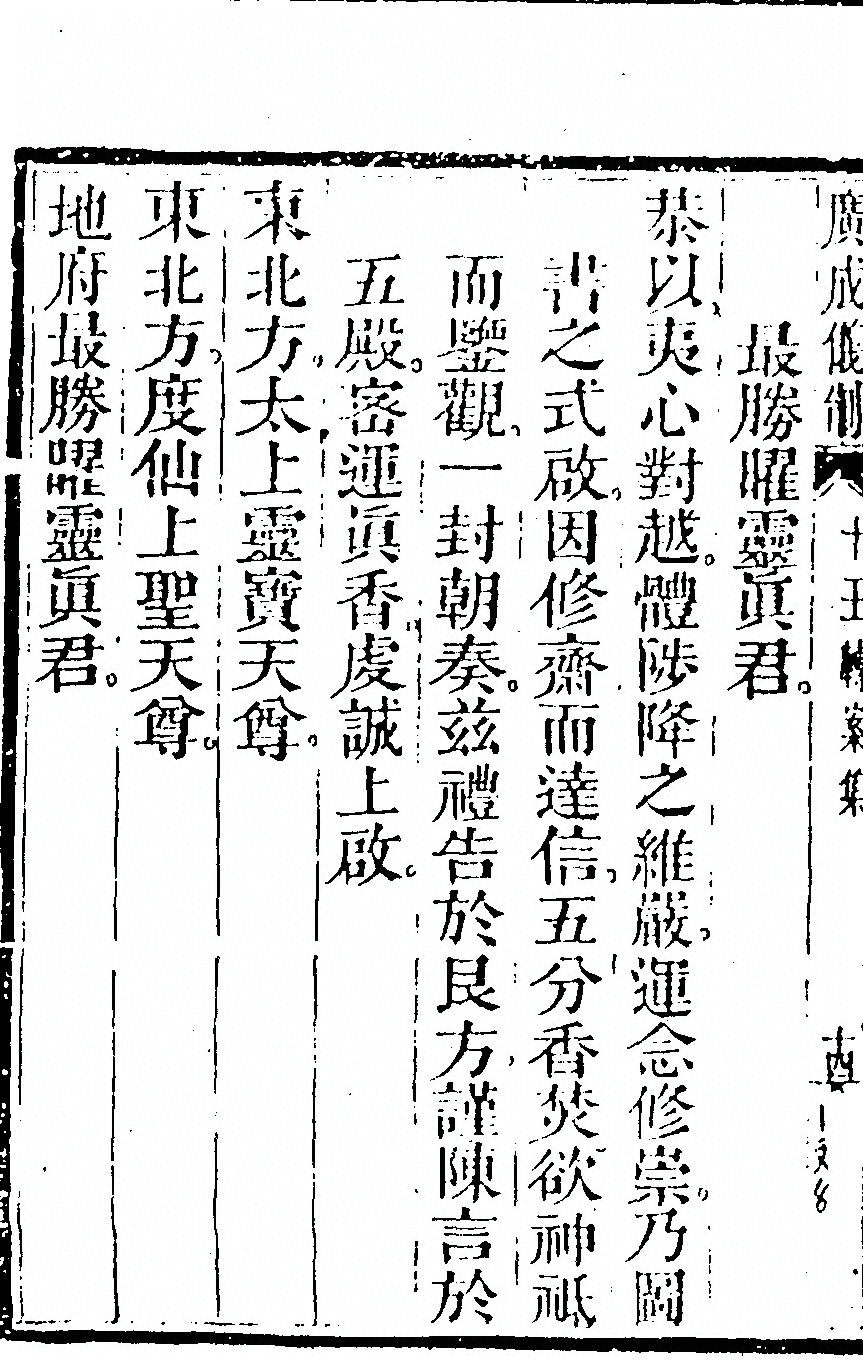 廣成儀制 十王轉案集 十四
最勝曜靈眞君。
恭以、夷心對越。體陟降之維嚴。運念修崇。乃圖
書之式啟。因修齋而達信。五分香焚欲神祗
而鑒觀。一封朝奏。兹禮告於艮方、謹陳言於
五殿。密運眞香虔誠上啟。
東北方。太上靈寶天尊。
東北方。度仙上聖天尊。
地府最勝曜靈眞君。